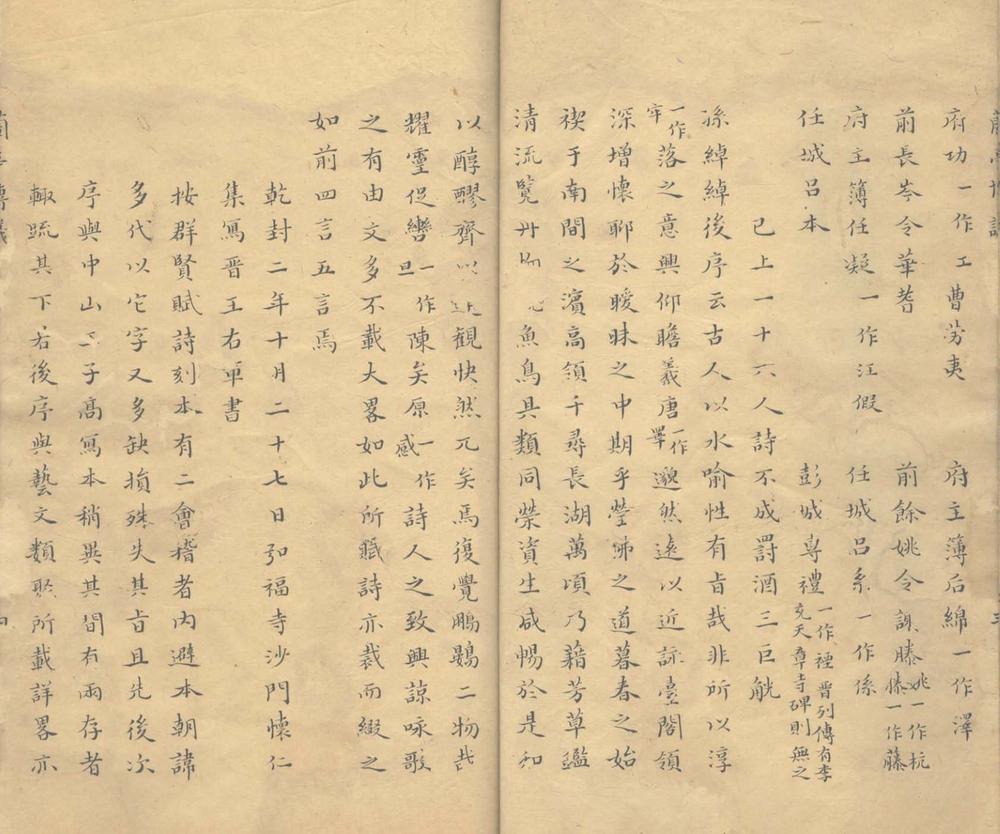 府功一作工曹劳夷　府主簿后綿一作澤
前長岑令華耆　前餘姚令謝滕姚一作杭滕一作藤
府主簿任凝一作汪假　任城呂系一作係
任城呂本　彭城專禮一作禋晋列傳有李充天章寺碑則無之
已上一十六人詩不成罰酒三巨觥
孫綽綽後序云古人以水喻性有旨哉非所以淳
一作牢落之意興仰瞻羲唐一作畢邈然遠以近詠臺閣領
深增懷耶於曖昧之中期乎瑩沸之道暮春之始
禊于南間之濵高領千尋長湖萬頃乃藉芳草鑑
清流覽卉物魚鳥具類同榮資生咸暢於是和
以醇醪齊以達觀快然兀矣焉復覺鵬鷃二物哉
耀靈促轡一作旦陳矣原一作感詩人之致興諒咏歌
之有由文多不載大畧如此所賦詩亦裁而綴之
如前四言五言焉
乾封二年十月二十七日弘福寺沙門懷仁
集寫晋王右軍書
按群賢賦詩刻本有二會稽者内避本朝諱
多代以它字又多缺損殊失其旨且先後次
序與中山王子高寫本稍異其間有兩存者
輙䟽其下若後序與藝文類聚所載詳畧亦